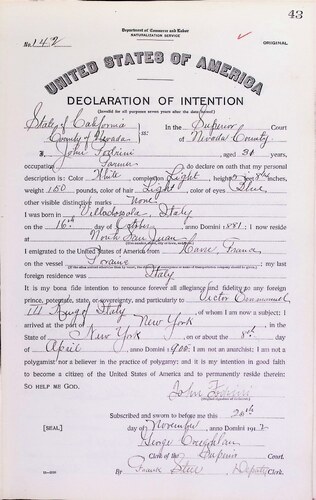 43
Department of Commerce and Labor
NATURALIZATION SERVICE
No. 142
ORIGINAL
UNITED STATES OF AMERICA
DECLARATION OF INTENTION
(Invalid for all purposes seven years after the date hereof)
State of California
County of Nevada ss:
In the Superior Court
of Nevada County
I, John, aged 31 years,
occupation Farmer, do declare on oath that my personal
description is: Color White, complexion Light, height 5 feet inches,
weight 160 pounds, color of hair Light, color of eyes Blue,
other visible distinctive marks None
I was born in Italy
on the 16th day of October, anno Domini 1881; I now reside
at North San Juan, Cal
I emigrated to the United States of America from Havre, France
on the vessel; my last
foreign residence was Italy
It is my bona fide intention to renounce forever all allegiance and fidelity to any foreign
prince, potentate, state, or sovereignty, and particularly to Victor Emmanuel
III King of Italy, of whom I am now a subject; I
arrived at the port of New York, in the
State of New York, on or about the 8th day
of April, anno Domini 1900; I am not an anarchist; I am not a
polygamist nor a believer in the practice of polygamy; and it is my intention in good faith
to become a citizen of the United States of America and to permanently reside therein:
SO HELP ME GOD.
John
Subscribed and sworn to before me this 20th
[SEAL] day of November, anno Domini 1912
George Coughlan
Clerk of the Superior Court
By Frank Steel, Deputy Clerk.